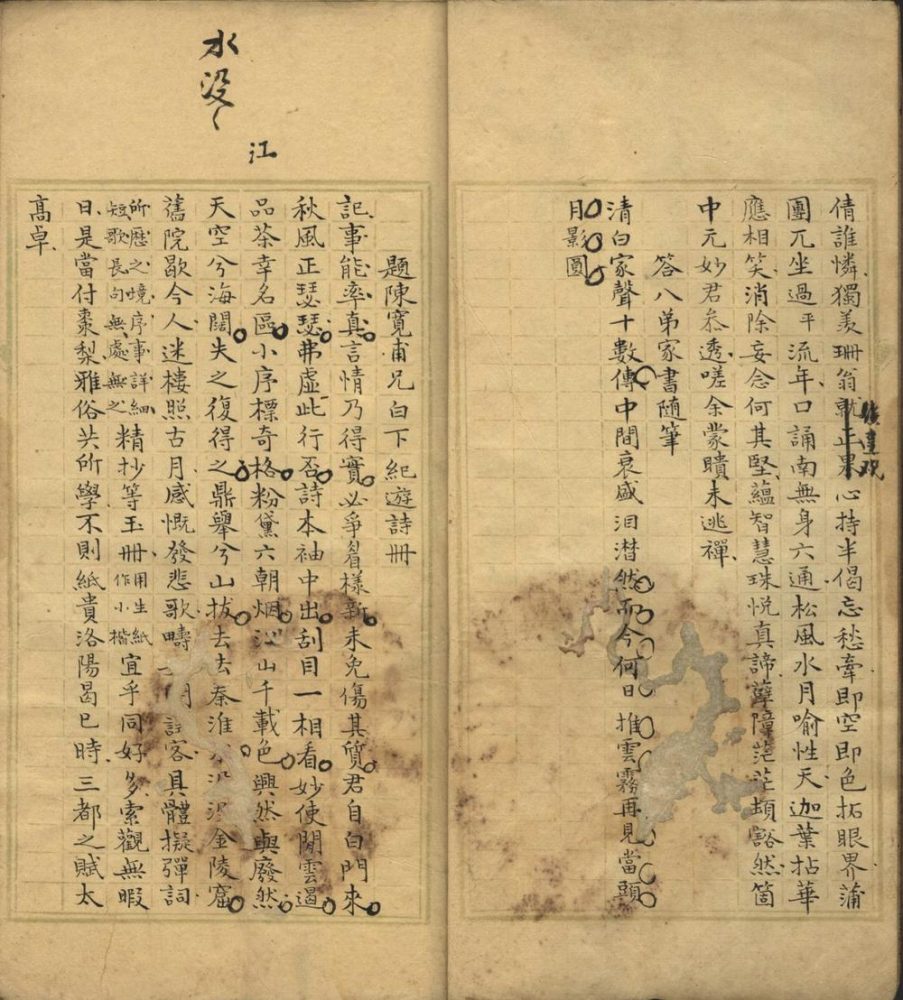 倩誰憐獨羨珊翁就正果心持半偈忘愁牽即空即色拓眼界蒲
團兀坐過平流年口誦南無身六通松風水月喻性天迦葉拈華
應相笑消除妄念何其堅蘊智慧珠悅真諦孽障茫茫頓豁然箇
中元妙君叅透嗟余蒙瞶未逃禪
答八弟家書隨筆
清白家聲十數傳中間衰盛泪潜然而今何日推雲霧再見當頭
月影圓
水没〻
江
題陳寬甫兄白下紀遊詩冊
記事能率真言情乃得實必爭眉樣新未免傷其質君自白門來
秋風正瑟瑟弗虛此行否詩本袖中出刮目一相看妙使閒雲遏
品茶幸名區小序標奇格粉黛六朝烟江山千載色興然與廢然
天空兮海闊失之復得之鼎舉兮山拔去去秦淮水没没金陵窟
舊院歇今人迷樓照古月感慨發悲歌疇 客具體擬彈詞
所歷之境序事詳細短歌長句無處無之精抄等玉冊用生紙作小楷宜乎同好多索觀無暇
日是當付棗梨雅俗共所學不則紙貴洛陽曷已時三都之賦太
高卓